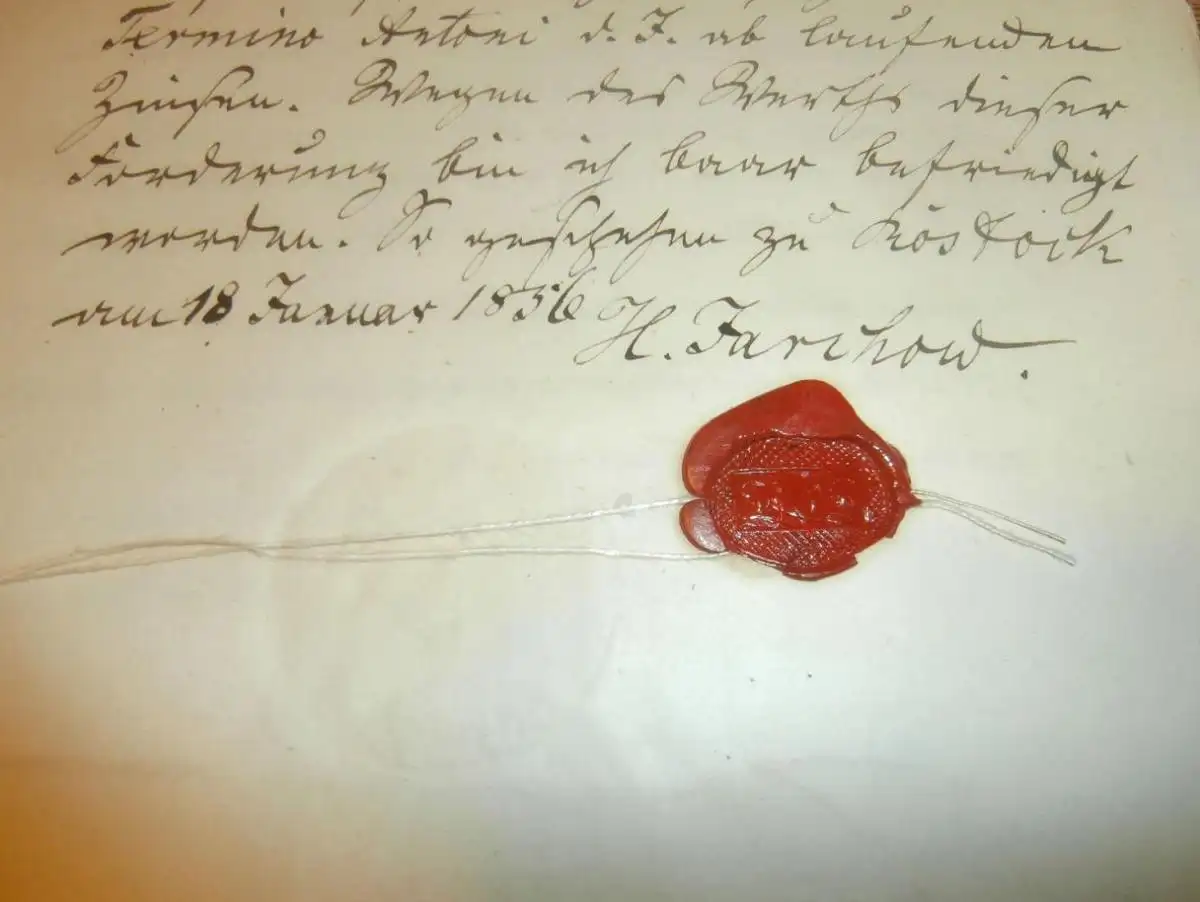 Termino Antoni d. J. ab laufenden
Zinsen. Wegen des Werths dieser
Forderung bin ich baar befriedigt
worden. So geschehen zu Rostock
am 18 Januar 1856
H. Jarchow.